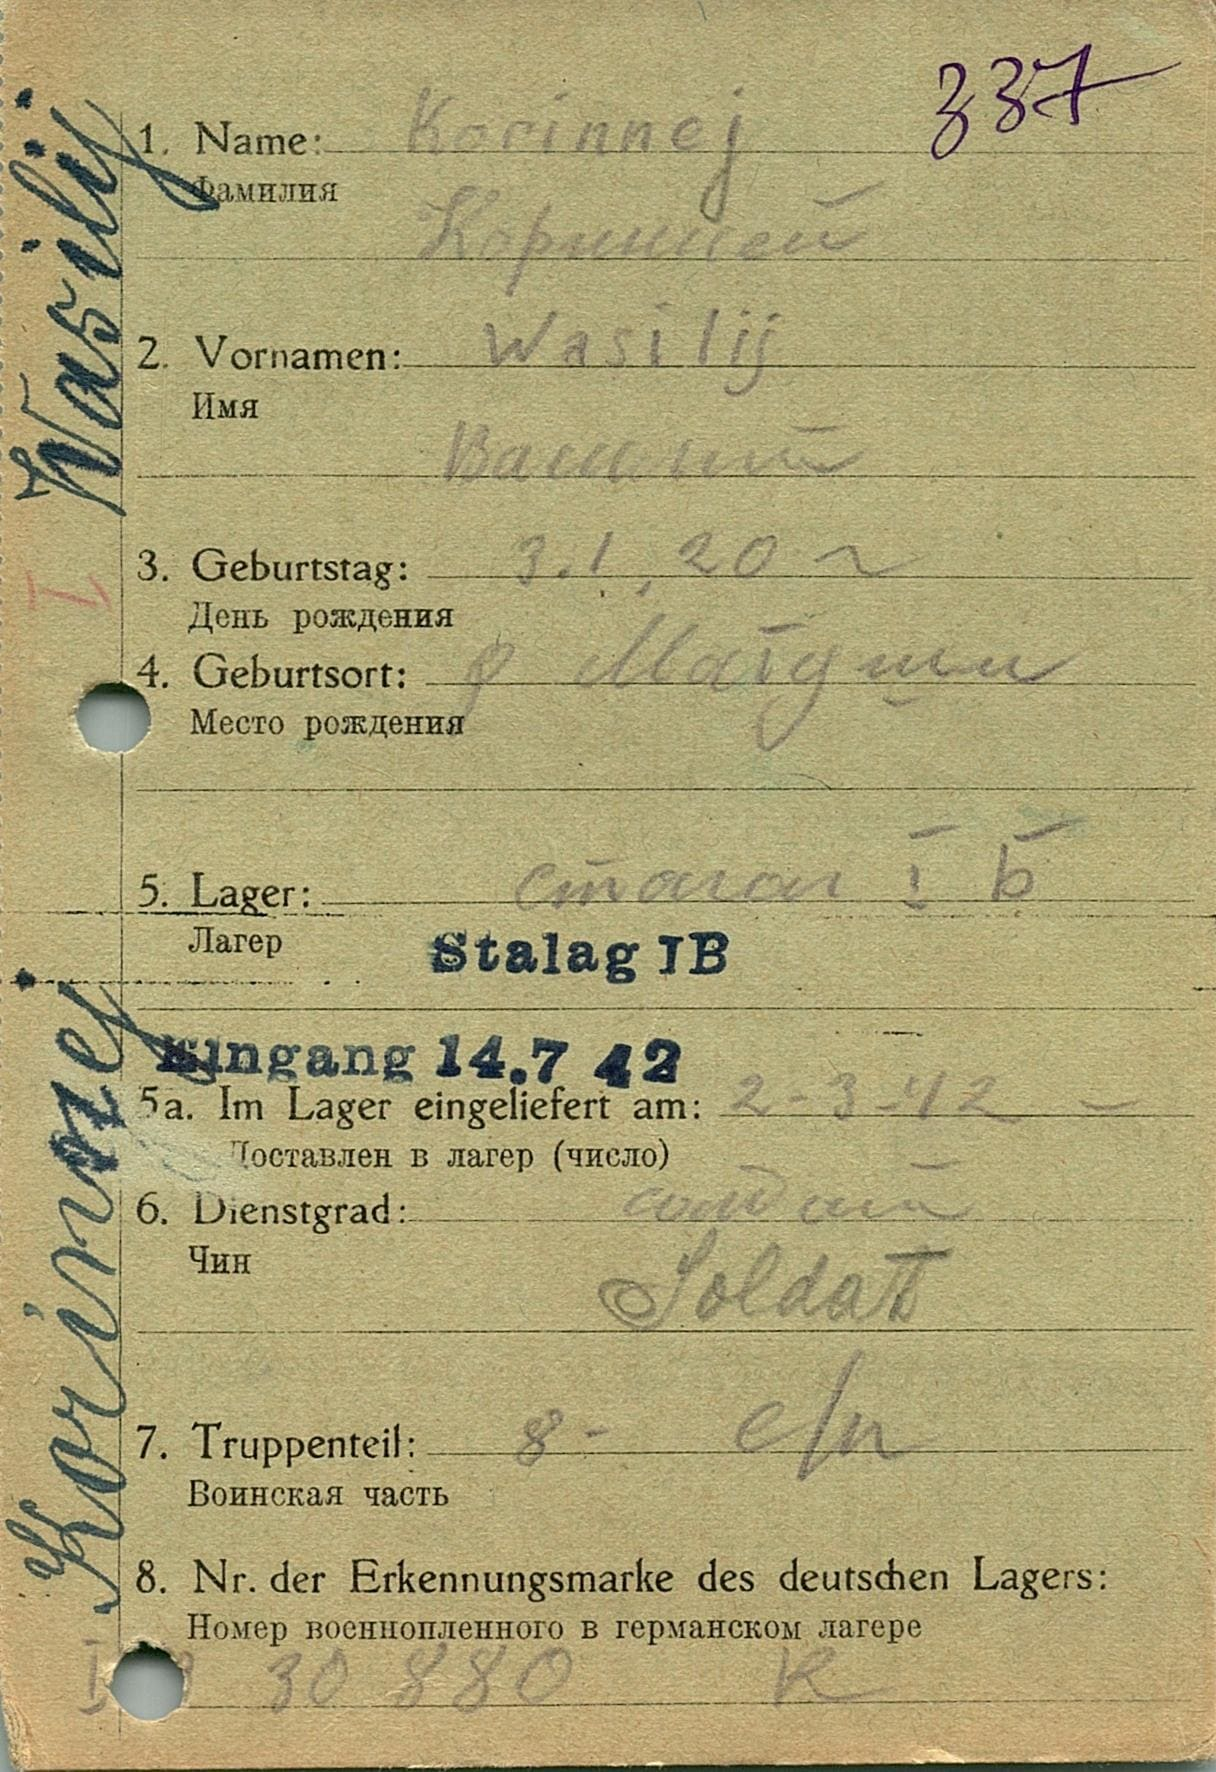 337
1. Name: Korinnej
Фамилия
Коринней
2. Vornamen: Wasilij
Имя
Василий
3. Geburtstag: 3.1.20
День рождения
4. Geburtsort:
Место рождения
5. Lager: сталаг I Б
Лагер
Stalag IB
Eingang 14.7 42
5a. Im Lager eingeliefert am: 2-3-42
Доставлен в лагер (число)
6. Dienstgrad: солдат
Чин
Soldat
7. Truppenteil: 8- с/п
Воинская часть
8. Nr. der Erkennungsmarke des deutschen Lagers:
Номер военнопленного в германском лагере
I 30 880 K
Korinnej Wasilij
I